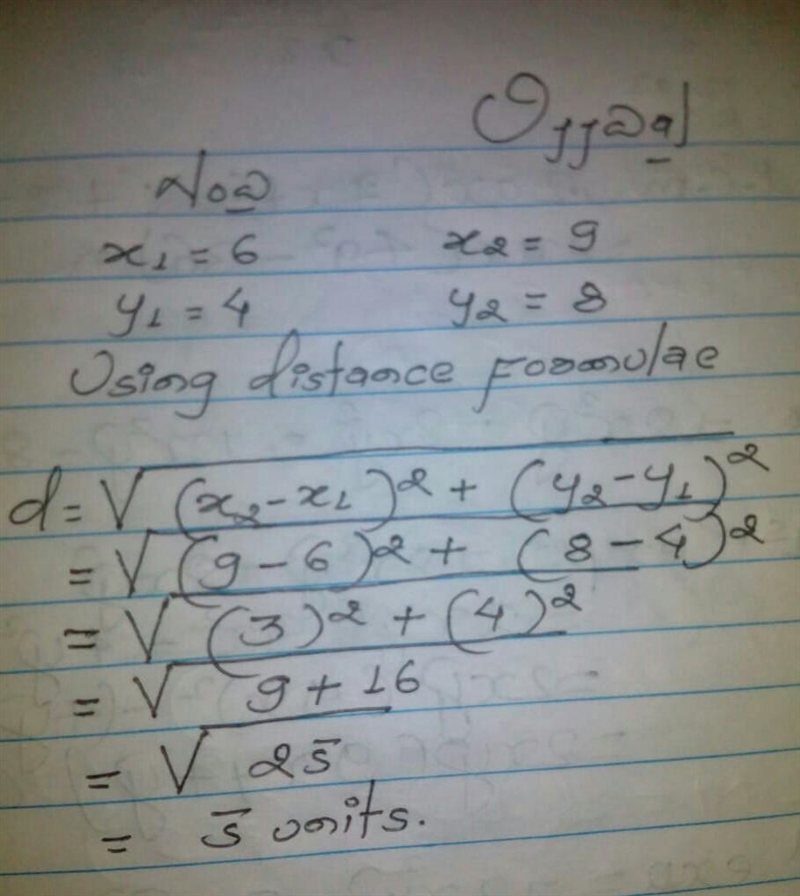 x₁ = 6 x₂ = 9
y₁ = 4 y₂ = 8
Using distance Formulae
d = √(x₂ - x₁)² + (y₂ - y₁)²
= √(9 - 6)² + (8 - 4)²
= √(3)² + (4)²
= √9 + 16
= √25
= 5 units.